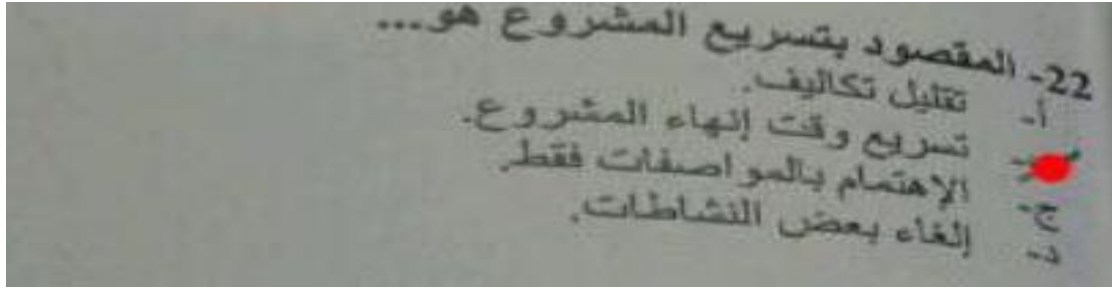 22- المقصود بتسريع المشروع هو...
أ- تقليل تكاليف.
تسريع وقت إنهاء المشروع.
ج- الاهتمام بالمواصفات فقط.
د- إلغاء بعض النشاطات.